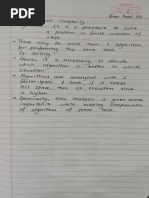 complexity
It is a procedure to solve
a problem in finite number of
There may be more than 1 algorithm
for performing the same task
Hence, it is necessary to decide
which algorithm is better in which
Algorithms are analyzed with 2
factors: space & time, if it takes
less space, then its execution time
is higher
Generally, time analysis is given more
importance while making comparison
of algorithms of same task